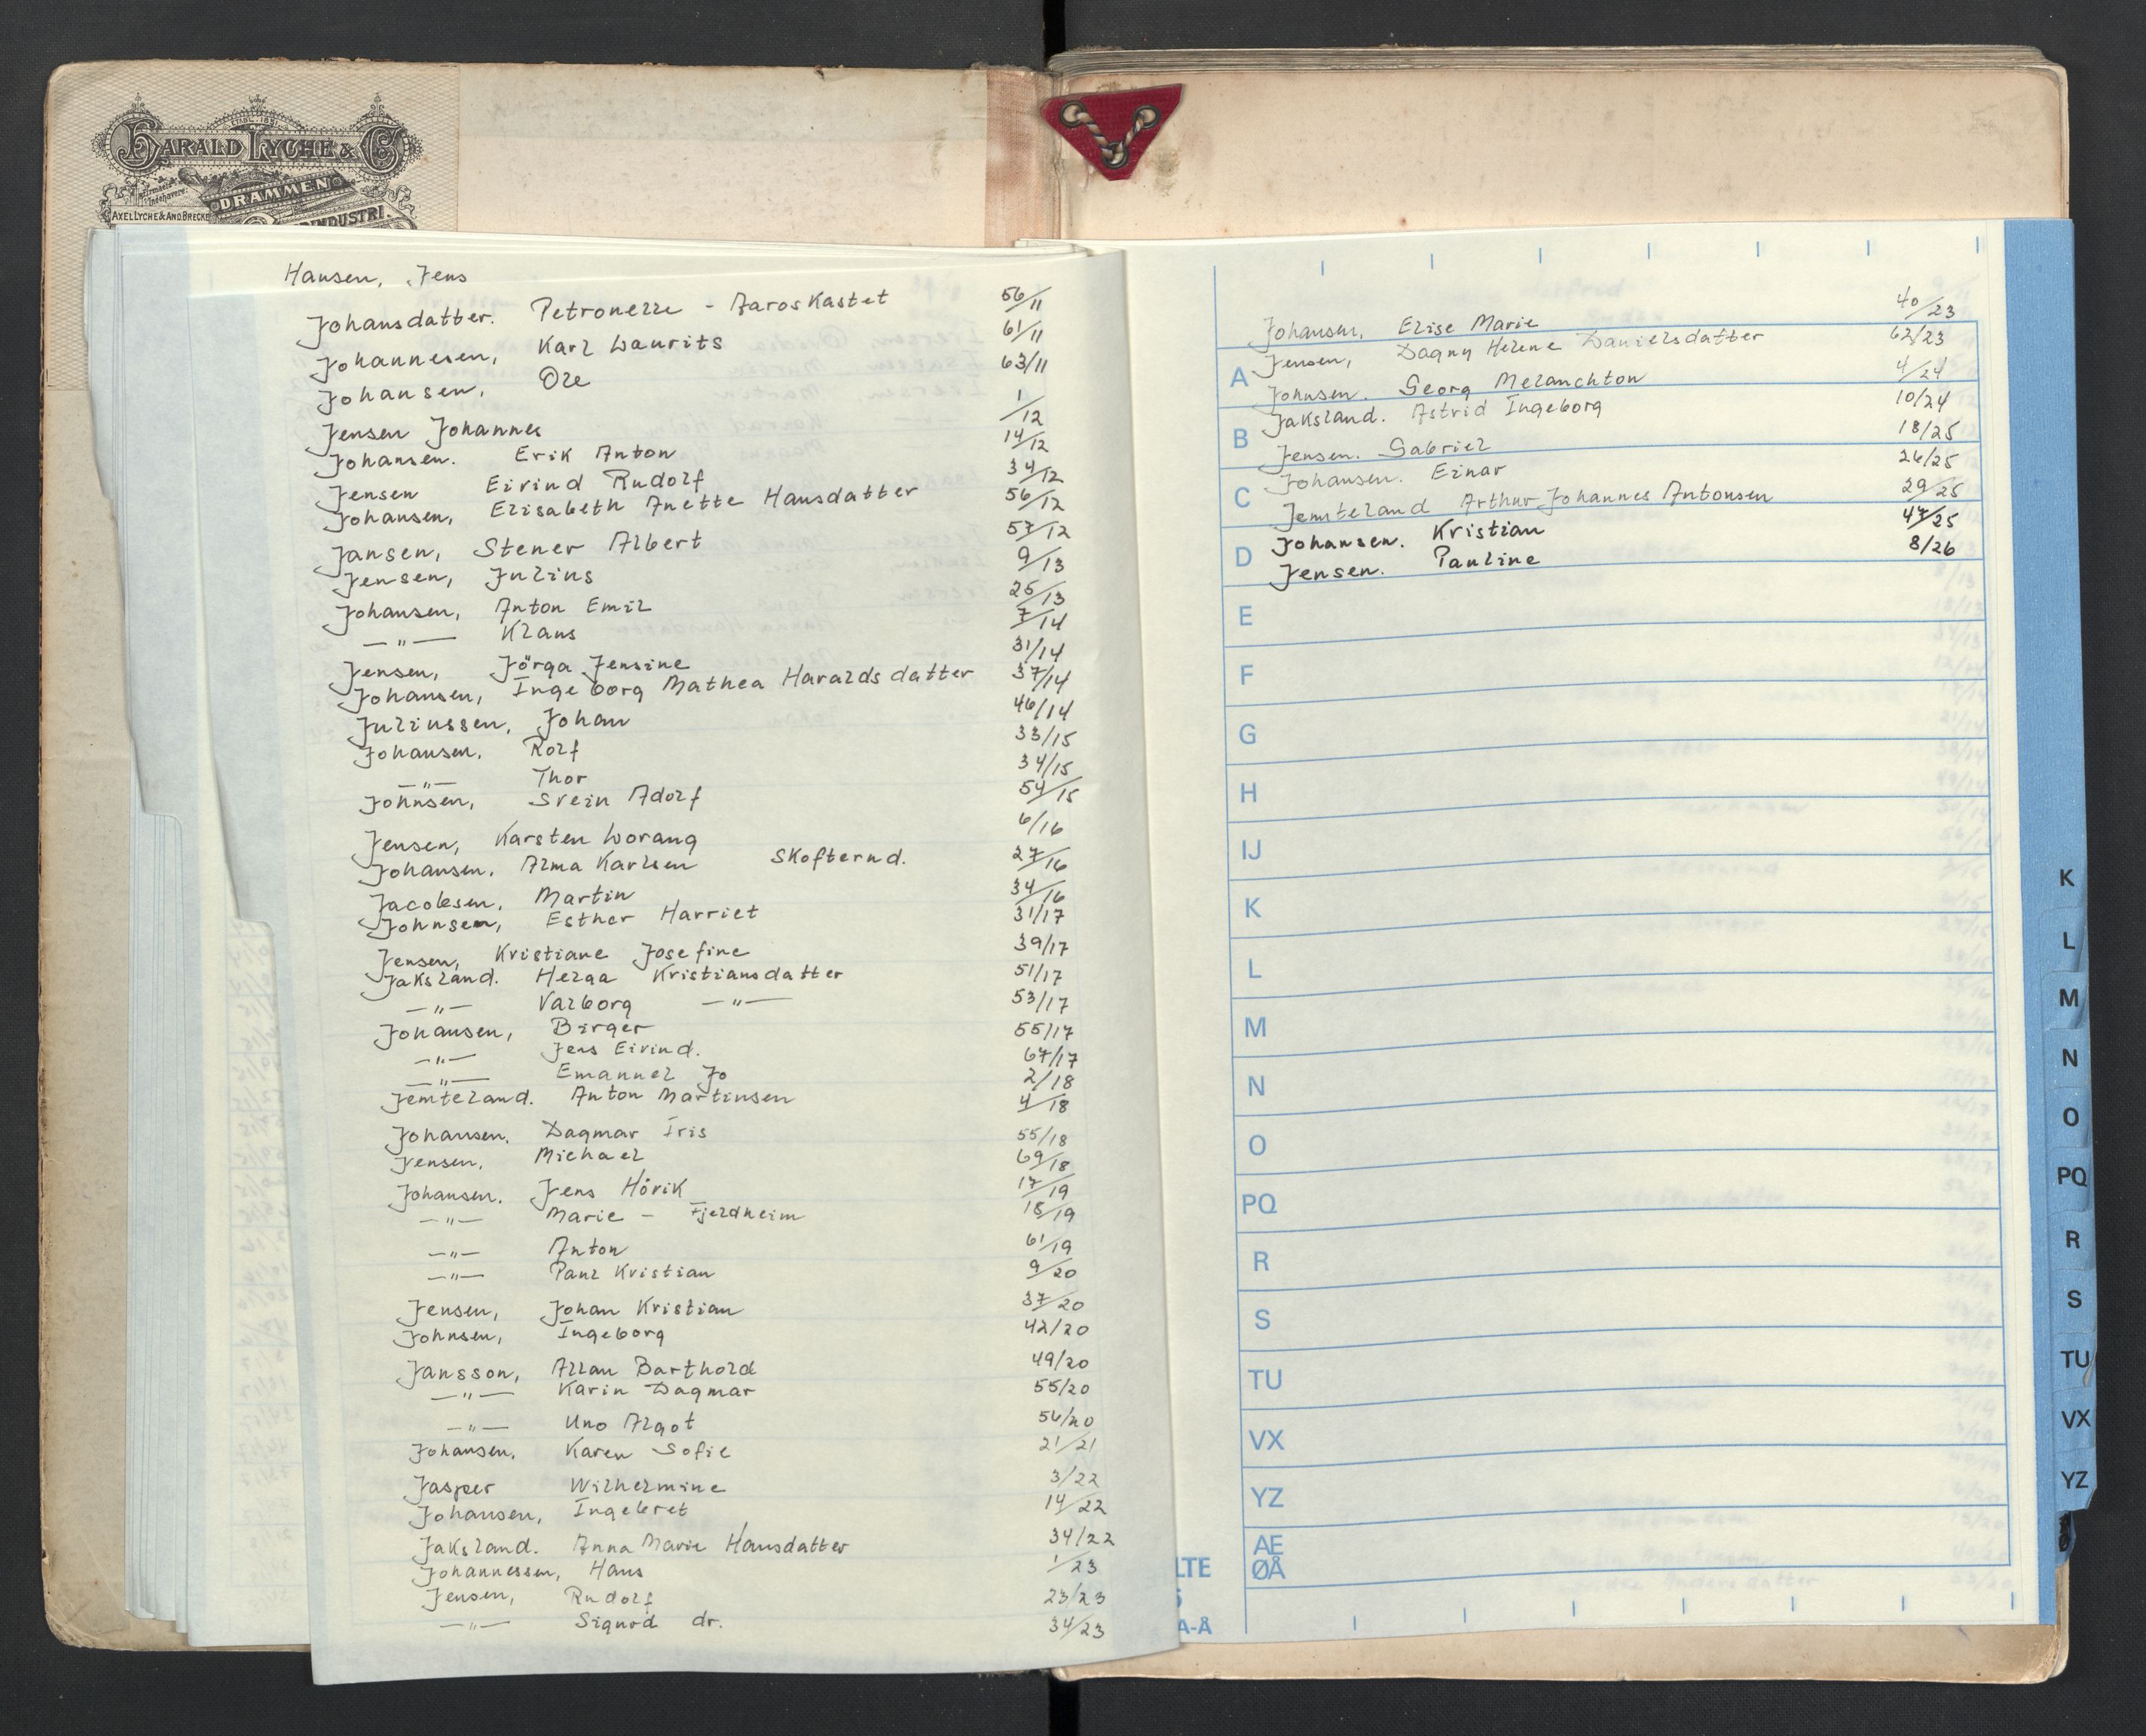 ETABL. 1851
HARALD LYCHE & Co
DRAMMEN
AXEL LYCHE & AND. BRECKE
INDUSTRI.
Hansen, Jens
Johansdatter. Petronelle - Aaroskastet 56/11
Johannesen, Karl Laurits 61/11
Johansen, Ole 63/11
Jensen Johannes 1/12
Johansen. Erik Anton 14/12
Jensen Eivind Rudolf 34/12
Johansen, Elisabeth Anette Hansdatter 56/12
Jansen, Stener Albert 57/12
Jensen, Julius 9/13
Johansen, Anton Emil 25/13
—„— Klaus 7/14
Jensen, Jörga Jensine 31/14
Johansen, Ingeborg Mathea Haraldsdatter 37/14
Juliussen, Johan 46/14
Johansen, Rolf 33/15
—„— Thor 34/15
Johnsen, Svein Adolf 54/15
Jensen, Karsten Lorang 6/16
Johansen, Alma Karlsen Skofternd. 27/16
Jacobsen, Martin 34/16
Johnsen, Esther Harriet 31/17
Jensen, Kristiane Josefine 39/17
Jaksland. Helga Kristiansdatter 51/17
—„— Valborg —„— 53/17
Johansen, Birger 55/17
—„— Jens Eivind. 67/17
—„— Emanuel Jo 2/18
Jemteland. Anton Martinsen 4/18
Johansen, Dagmar Iris 55/18
Jensen, Michael 69/18
Johansen. Jens Hörik 17/19
—„— Marie - Fjeldheim 18/19
—„— Anton 61/19
—„— Paul Kristian 9/20
Jensen, Johan Kristian 37/20
Johnsen, Ingeborg 42/20
Jansson, Allan Barthold 49/20
—„— Karin Dagmar 55/20
—„— Uno Algot 56/20
Johansen, Karen Sofie 21/21
Jasper Wilhelmine 3/22
Johansen, Ingebret 14/22
Jaksland. Anna Marie Hansdatter 34/22
Johannessen, Hans 1/23
Jensen, Rudolf 23/23
—„— Sigurd dr. 34/23
Johansen, Elise Marie 40/23
Jensen, Dagny Helene Danielsdatter 62/23
Johnsen. Georg Melanchton 4/24
Jaksland. Astrid Ingeborg 10/24
Jensen. Gabriel 18/25
Johansen. Einar 26/25
Jemteland Arthur Johannes Antonsen 29/25
Johansen. Kristian 47/25
Jensen. Pauline 8/26
A
B
C
D
E
F
G
H
IJ
K
L
M
N
O
PQ
R
S
TU
VX
YZ
AE
ØÅ
LTE
A-Å
K
L
M
N
O
PQ
R
S
TU
VX
YZ